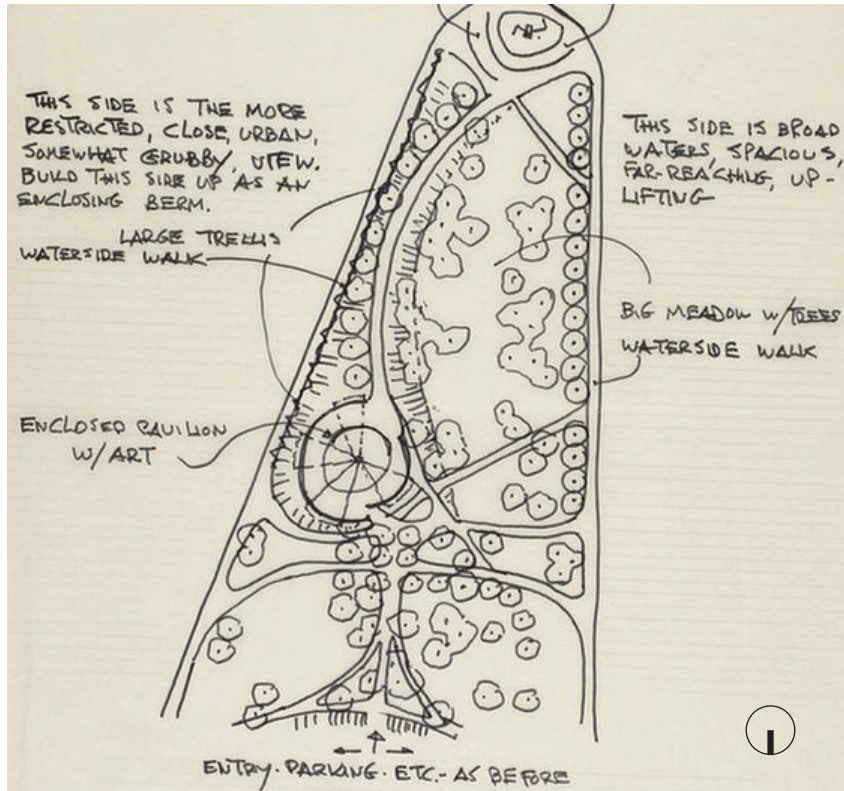 THIS SIDE IS THE MORE
RESTRICTED, CLOSE, URBAN,
SOMEWHAT GRUBBY, VIEW.
BUILD THIS SIDE UP AS AN
ENCLOSING BERM.
LARGE TRELLIS
WATERSIDE WALK
ENCLOSED PAVILION
W/ ART
THIS SIDE IS BROAD
WATERS, SPACIOUS,
FAR-REACHING, UP-
LIFTING
BIG MEADOW W/TREES
WATERSIDE WALK
ENTRY · PARKING · ETC. - AS BEFORE